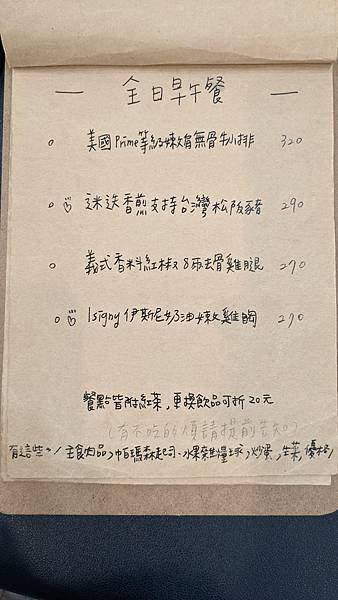 全日早午餐
美國Prime等級嫩煎無骨牛小排 320
迷迭香煎支持台灣松阪豬 290
義式香料紅椒8兩去骨雞腿 270
Isigny伊斯尼奶油嫩雞胸 270
餐點皆附紅茶,更換飲品可折20元
(有不吃的煩請提前告知)
有這些~/主食肉品,帕瑪森起司、水果,炒蛋,生菜,優格/